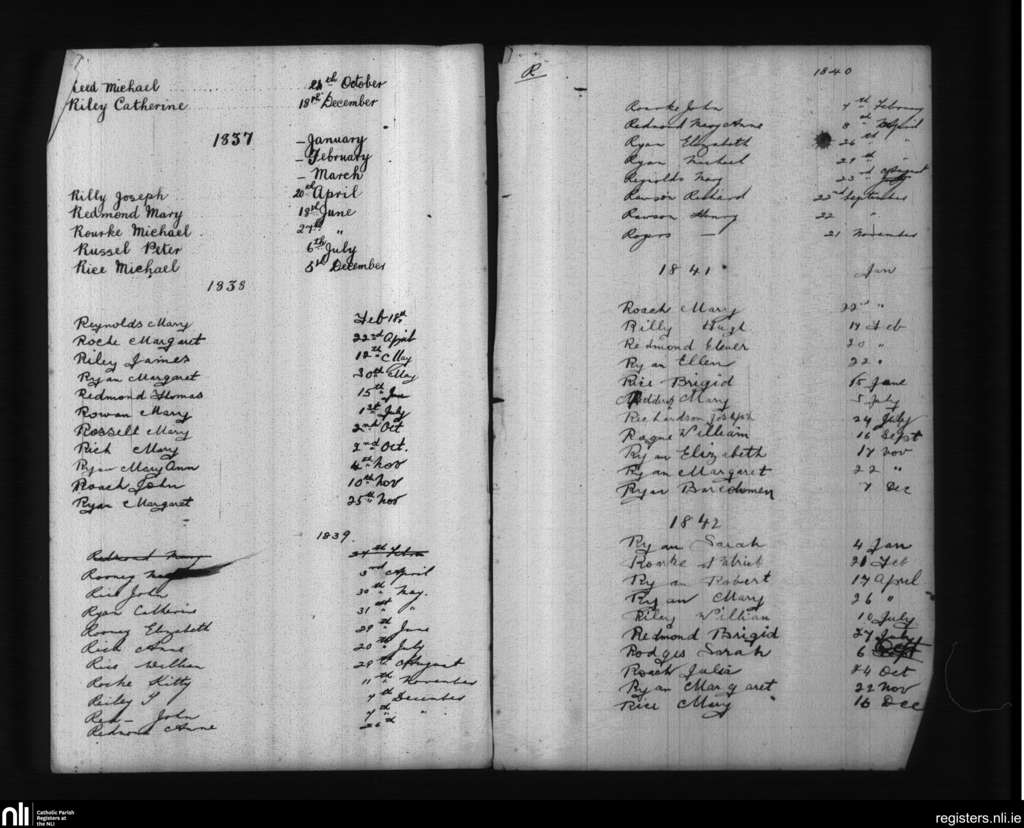 Reed Michael 21th October
Riley Catherine 18th December
1837 - January
- February
- March
Rilly Joseph 20th April
Redmond Mary 18th June
Rourke Michael 27th "
Russel Peter 6th July
Rice Michael 3rd December
1838
Reynolds Mary Feb 18th
Roche Margaret 22nd April
Riley James 12th May
Ryan Margaret 30th May
Redmond Thomas 15th Jun
Rowan Mary 1st July
Rossell Mary 2nd Oct
Rich Mary 2nd Oct.
Ryan Mary Ann 4th Nov
Roach John 10th Nov
Ryan Margaret 25th Nov
1839.
Redmond Mary 24th
Rooney 3rd April
Rice John 30th May.
Ryan Catherine 31st "
Rooney Elizabeth 29th June
Rich Anne 20th July
Rice William 29th August
Roche Kitty 11th November
Reily J 7th December
John 7th "
Redmond Anne 26th
R 1840
Rourke John 7th February
Redmond Mary Anne 8th April
Ryan Elizabeth 26th "
Ryan Michael 21th "
Regnolds May 23rd August
Rawson Richard 22nd September
Rawson Henry 22 "
Rogers - 21 November
1841 Jan
Roach Mary 22nd "
Rilly Hugh 17 Feb
Redmond Elener 20 "
Ryan Ellen 22 "
Rice Brigid 15 June
Mary 5 July
Richardson Joseph 24 July
Rague William 16 Sept
Ryan Elizabeth 17 Nov
Ryan Margaret 22 "
Ryan 7 Dec
1842
Ryan Sarah 4 Jan
Rourke Patrick 21 Feb
Ryan Robert 17 April
Ryan Mary 26 "
Riley William 10 July
Redmond Brigid 27 July
Rodges Sarah 6 Sept
Roach Julia 24 Oct
Ryan Margaret 22 Nov
Rice Mary 16 Dec
nli Catholic Parish
Registers at
the NLI
registers.nli.ie